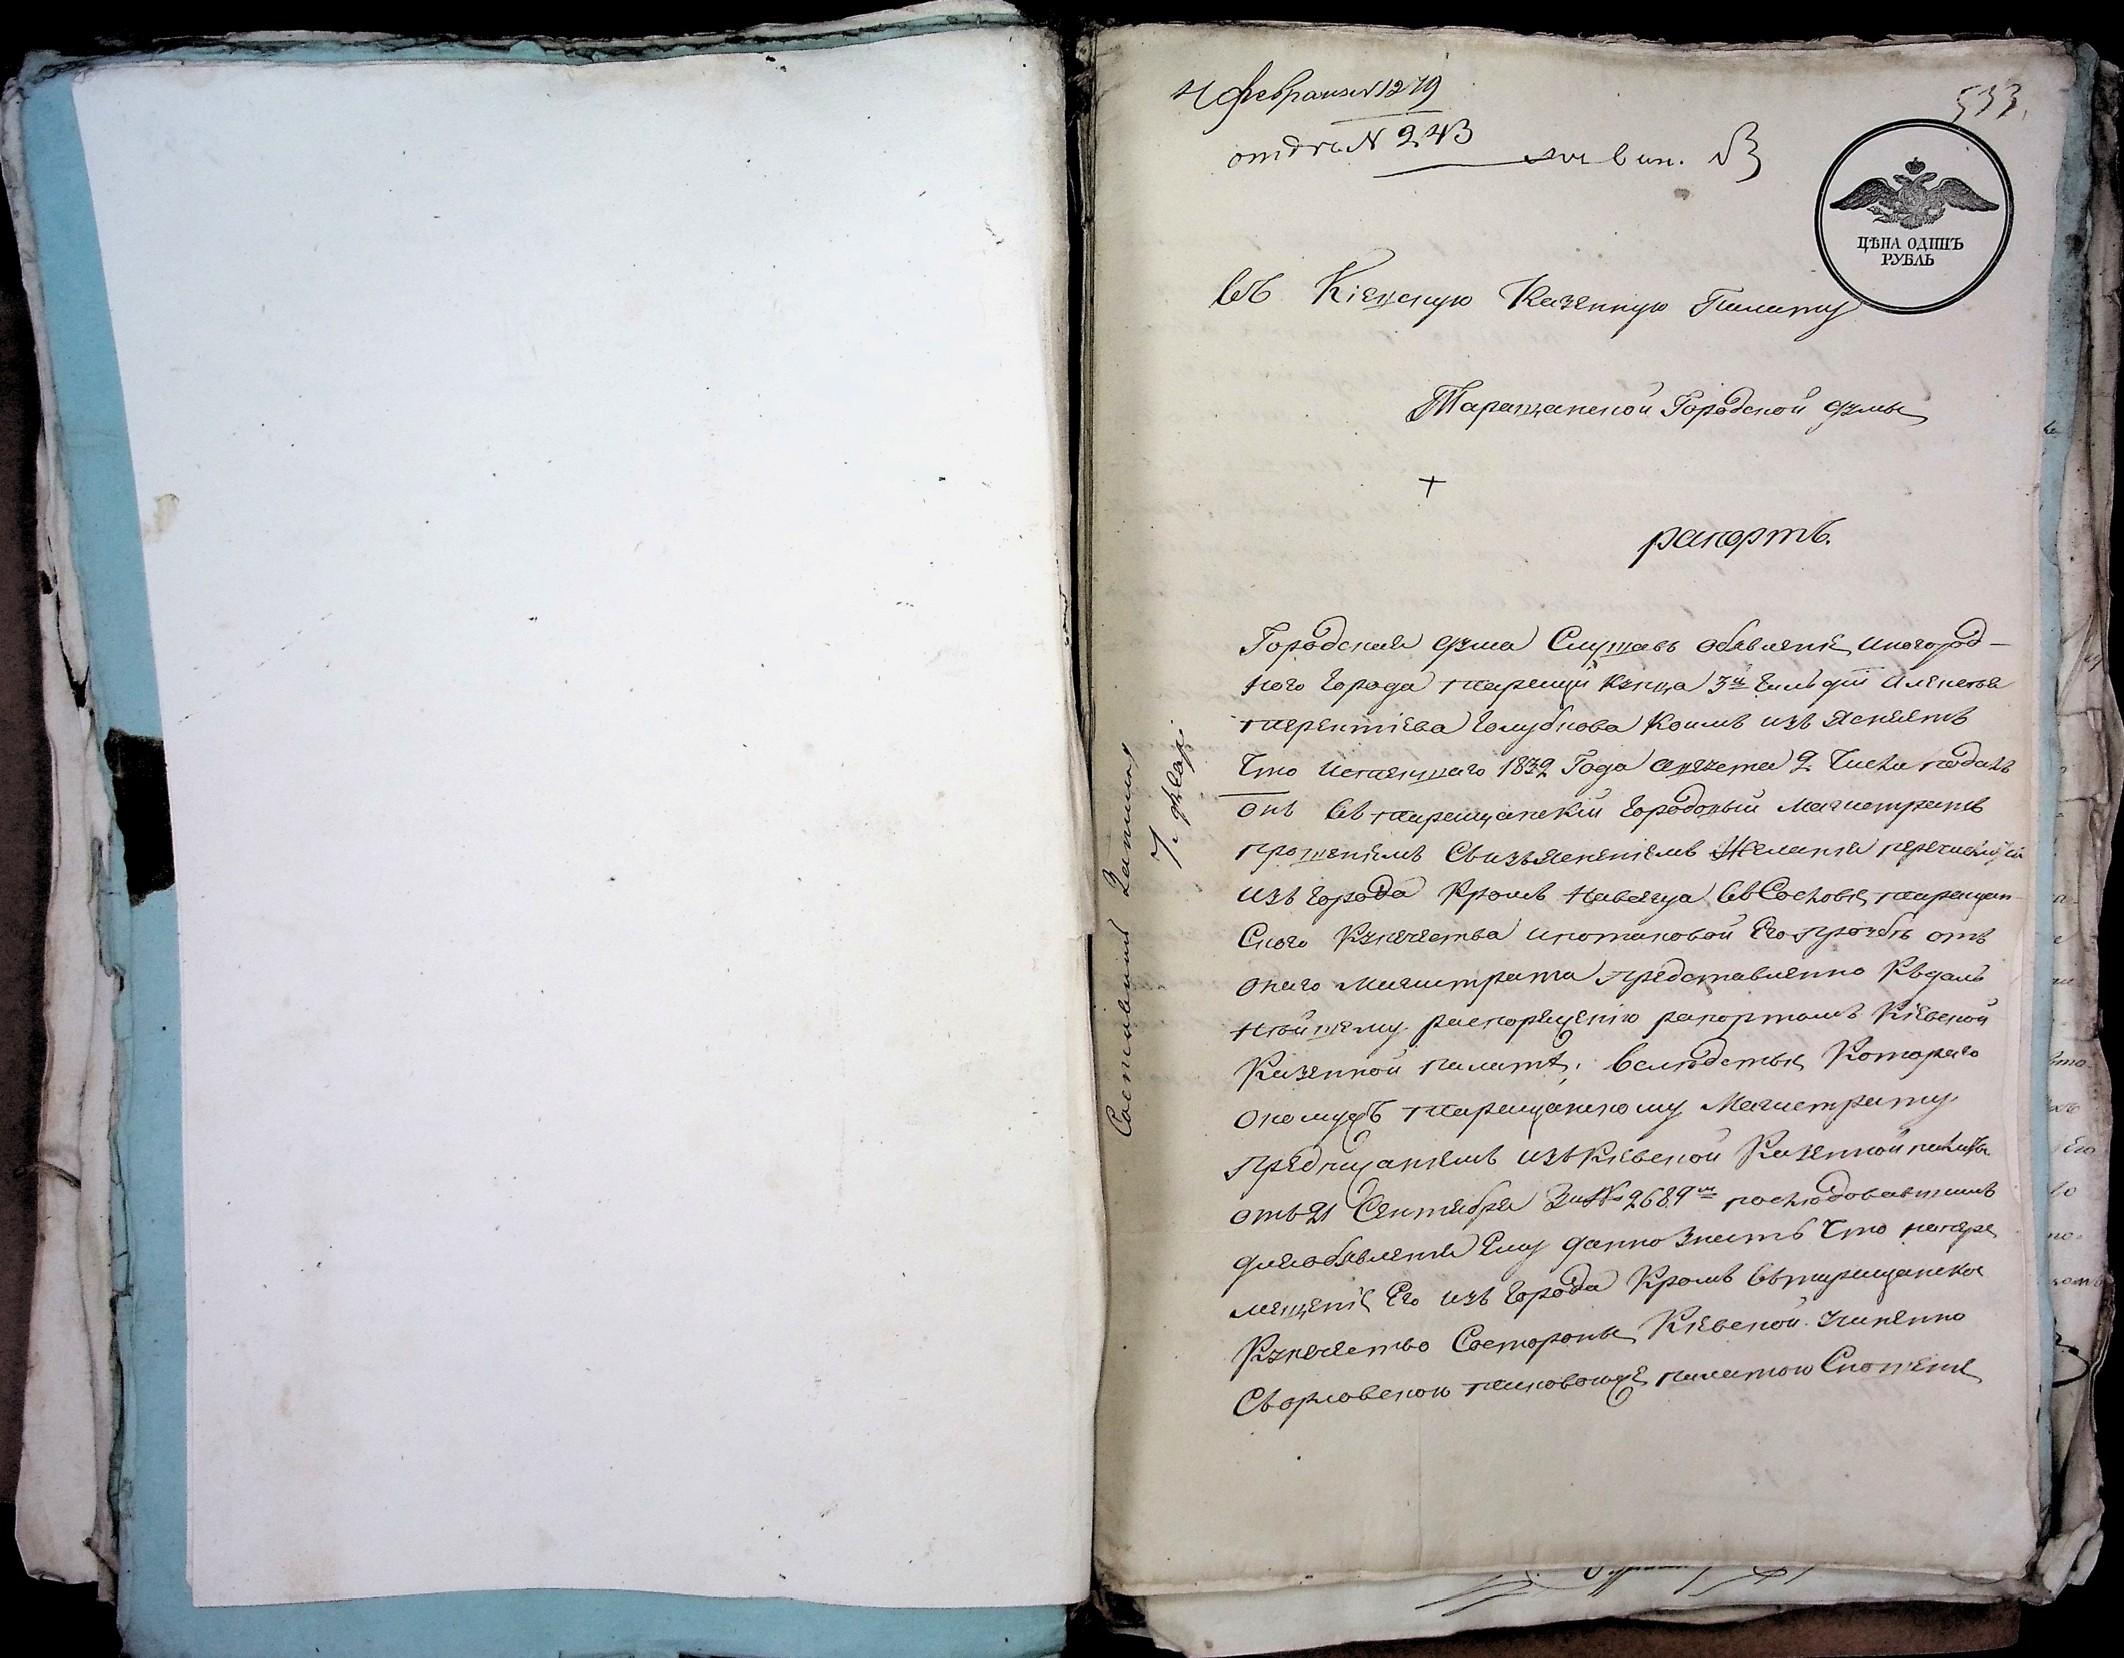 4 февраля №1279
533.
отдѣ № 243
ЦѢНА ОДИНЪ
РУБЛЬ
Въ Кіевскую Казенную Палату
Таращанской Городской думы
рапортъ.
Городская дума Слушавъ объявленіе иногород-
наго города таращи купца 3й гильдіи Алексѣя
терентіева голубкова Коимъ изъясняетъ
Что истекшаго 1832 Года августа 9 Числа подалъ
онъ въ таращанскій городовый Магистратъ
прошеніемъ Съизъясненіемъ Желанія перечислится
изъ города Кромъ навсегда въ Сословіе таращан
Скаго Купечества ипотаковой Его прозбѣ отъ
онаго Магистрата представленно Кьдаль
нѣйшему распоряженію рапортомъ Кіевской
Казенной палатѣ, Вслѣдствіе Котораго
ономужъ таращанскому Магистрату
предписаніемъ изъКіевской Казенной палаты
отъ21 Сентября За№ 26891м послѣдовавшимъ
дляобъявленія Ему данно Знать Что напере
мещеніе Его изъ города Кромъ въ таращанское
Купечество Состороны Кіевской учиненно
Сьорловскою таковоюже палатою Сношеніе
Составить Записку
7 февр.